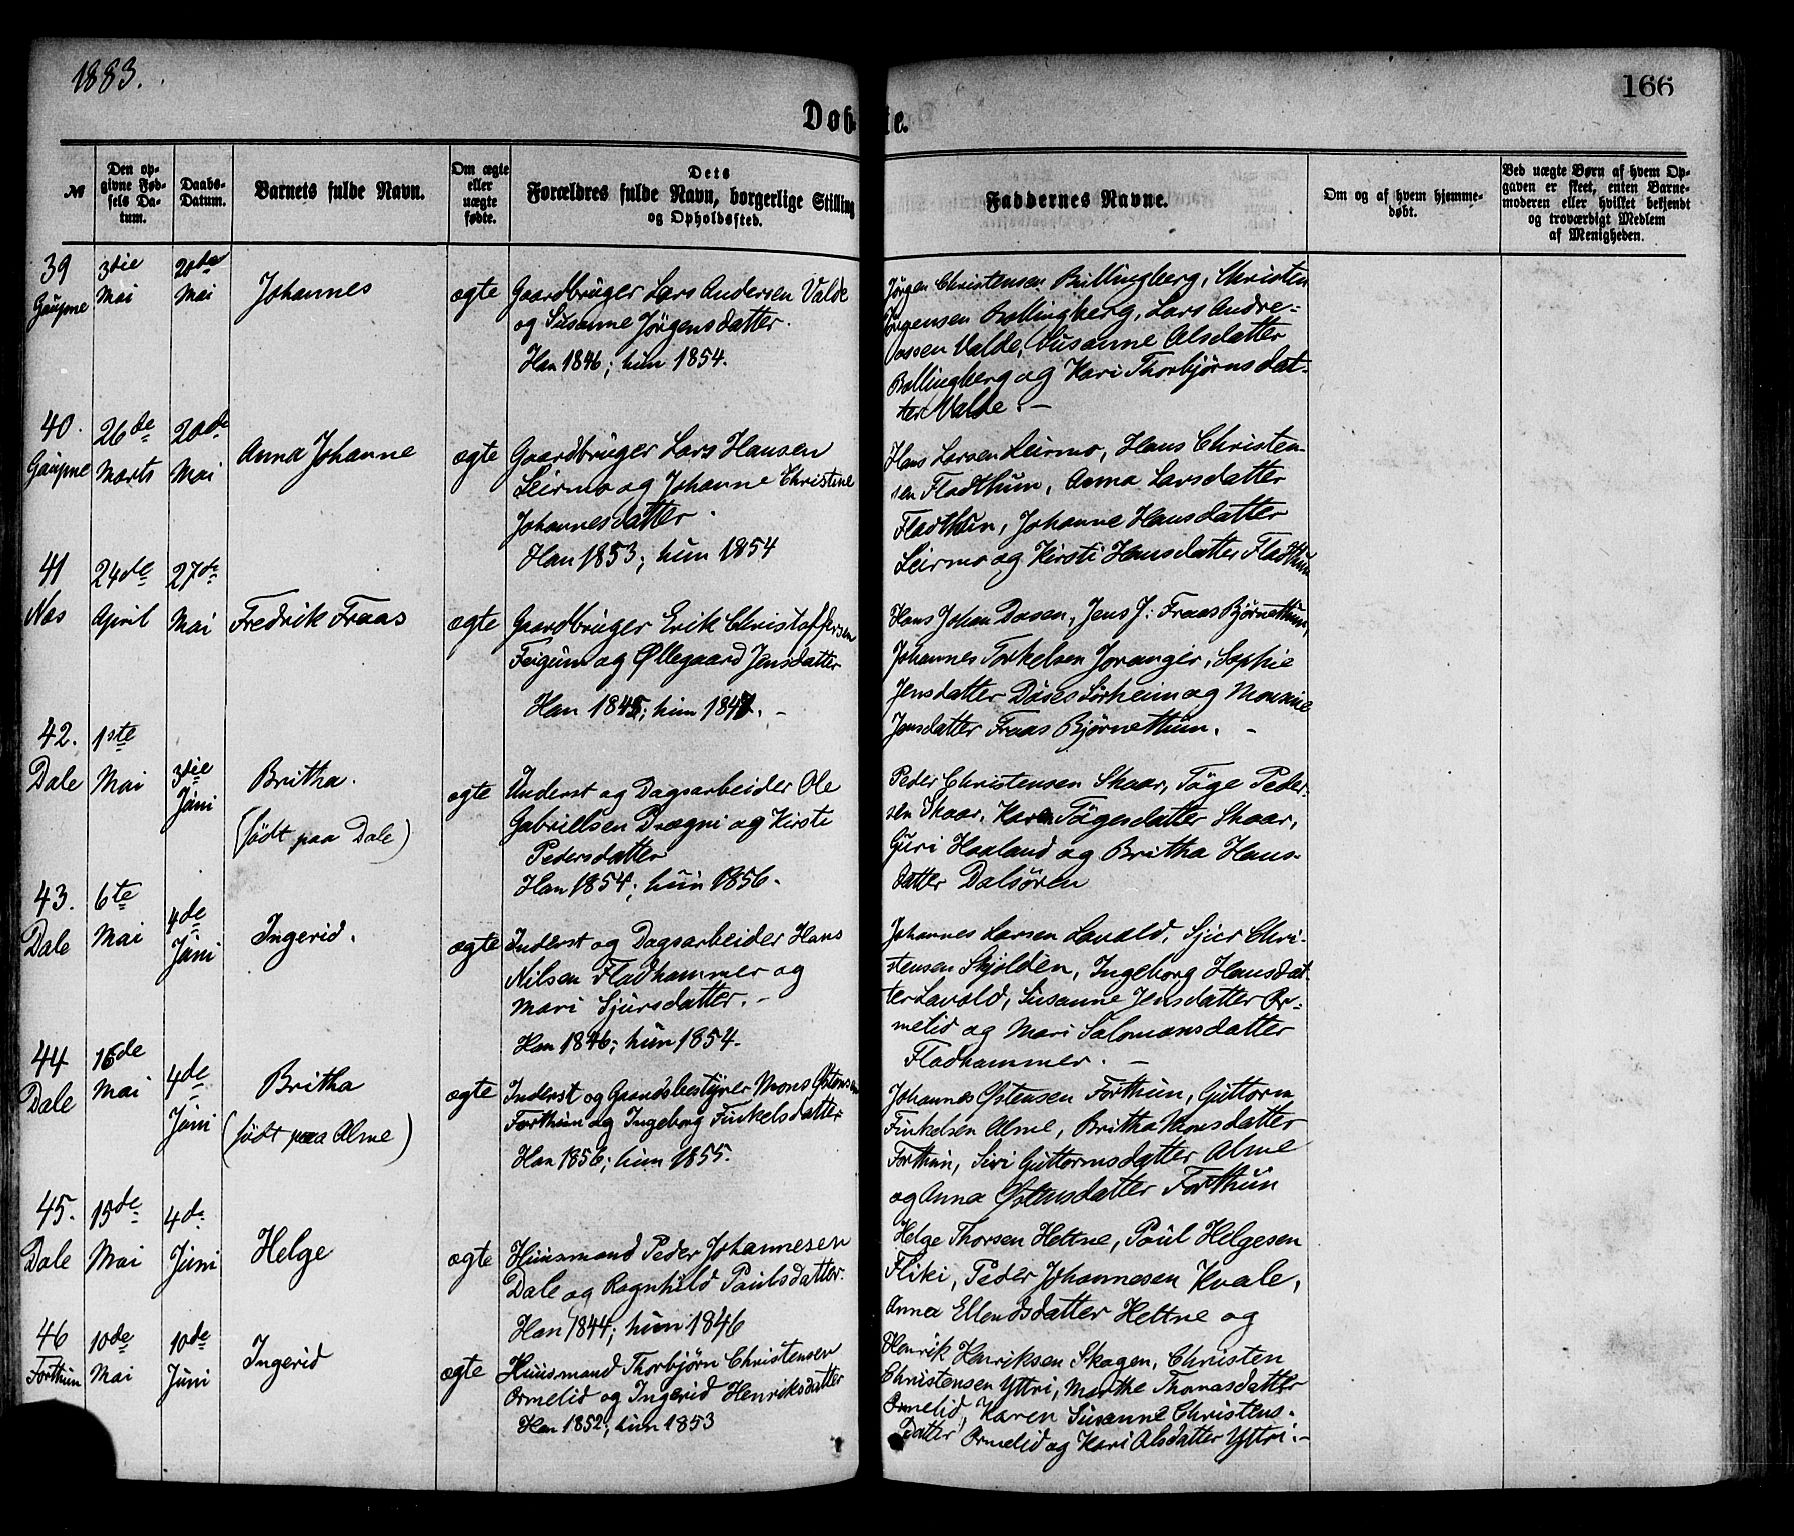 1883.
166
Døbte.
№
Den op-
givne Fød-
sels Da-
tum.
Daabs-
Datum.
Barnets fulde Navn.
Om ægte
eller
uægte
fødte.
Dets
Forældres fulde Navn, borgerlige Stilling
og Opholdssted.
Faddernes Navne.
Om og af hvem hjemme-
døbt.
Ved uægte Børn af hvem Op-
gaven er skeet, enten Barne-
moderen eller hvilket bekjendt
og troværdigt Medlem
af Menigheden.
39
Gaupne
3die
Mai
20de
Mai
Johannes
ægte
Gaardbruger Lars Andersen Valde
og Susanne Jørgensdatter.
Han 1846; hun 1854.
Jørgen Christensen Bollingberg, Christen
Jørgensen Bollingberg, Lars Andre-
assen Valde, Susanne Olsdatter
Bollingberg og Kari Thorbjørnsdat-
ter Valde. –
40.
Gaupne
26de
Marts
20de
Mai
Anna Johanne
ægte
Gaardbruger Lars Hansen
Leirmo og Johanne Christine
Johannesdatter.
Han 1853; hun 1854
Hans Larsen Leirmo, Hans Christen-
sen Fladthun, Anna Larsdatter
Fladthun, Johanne Hansdatter
Leirmo og Kirsti Hansdatter Fladthun
41
Nes
24de
April
27de
Mai
Fredrik Fraas
ægte
Gaardbruger Erik Christoffersen
Feigum og Øllegaard Jensdatter
Han 1845; hun 1847. –
Hans Johan Dosen, Jens J: Fraas Bjørnethun,
Johannes Torkelsen Joranger, Sophie
Jensdatter Døses Sørheim og Monsine
Jensdatter Fraas Bjørnethun. –
42.
Dale
1ste
Mai
3die
Juni
Britha.
(født paa Dale)
ægte
Inderst og Dagsarbeider Ole
Gabrielsen Drægni og Kirsti
Pedersdatter
Han 1854; hun 1856.
Peder Christensen Skaar, Tøge Peder-
sen Skaar, Karen Tøgesdatter Skaar,
Guri Haaland og Britha Hans-
datter Dalsøren
43.
Dale
6te
Mai
4de
Juni
Ingerid.
ægte
Inderst og Dagsarbeider Hans
Nilsen Fladhammer og
Mari Sjursdatter. –
Han 1846; hun 1854.
Johannes Larsen Lavold, Sjur Chri-
stensen Skjolden, Ingeborg Hansdat-
ter Lavold, Susanne Jensdatter Or-
melid og Mari Salomonsdatter
Fladhammer. –
44
Dale
16de
Mai
4de
Juni
Britha
(født paa Alme)
ægte
Inderst og Gaardsbestyrer Mons Østensen
Forthun og Ingeborg Finkelsdatter
Han 1856; hun 1855.
Johannes Østensen Forthun, Guttorm
Finkelsen Alme, Britha Monsdatter
Forthun, Siri Guttormsdatter Alme
og Anna Østensdatter Forthun
45.
Dale
15de
Mai
4de
Juni
Helge
ægte
Huusmand Peder Johannesen
Dale og Ragnhild Paulsdatter.
Han 1844; hun 1846
Helge Thorsen Hettne, Paul Helgesen
Fliki, Peder Johannesen Kvale,
Anna Ellendsdatter Hettne og
46
Forthun
10de
Mai
10de
Juni
Ingerid
ægte
Huusmand Thorbjørn Christensen
Ormelid og Ingerid Henriksdatter
Han 1852; hun 1853
Henrik Henriksen Skagen, Christen
Christensen Yttri, Marthe Thomasdatter
Ormelid, Karen Susanne Christens-
datter Ormelid og Kari Olsdatter Yttri. –